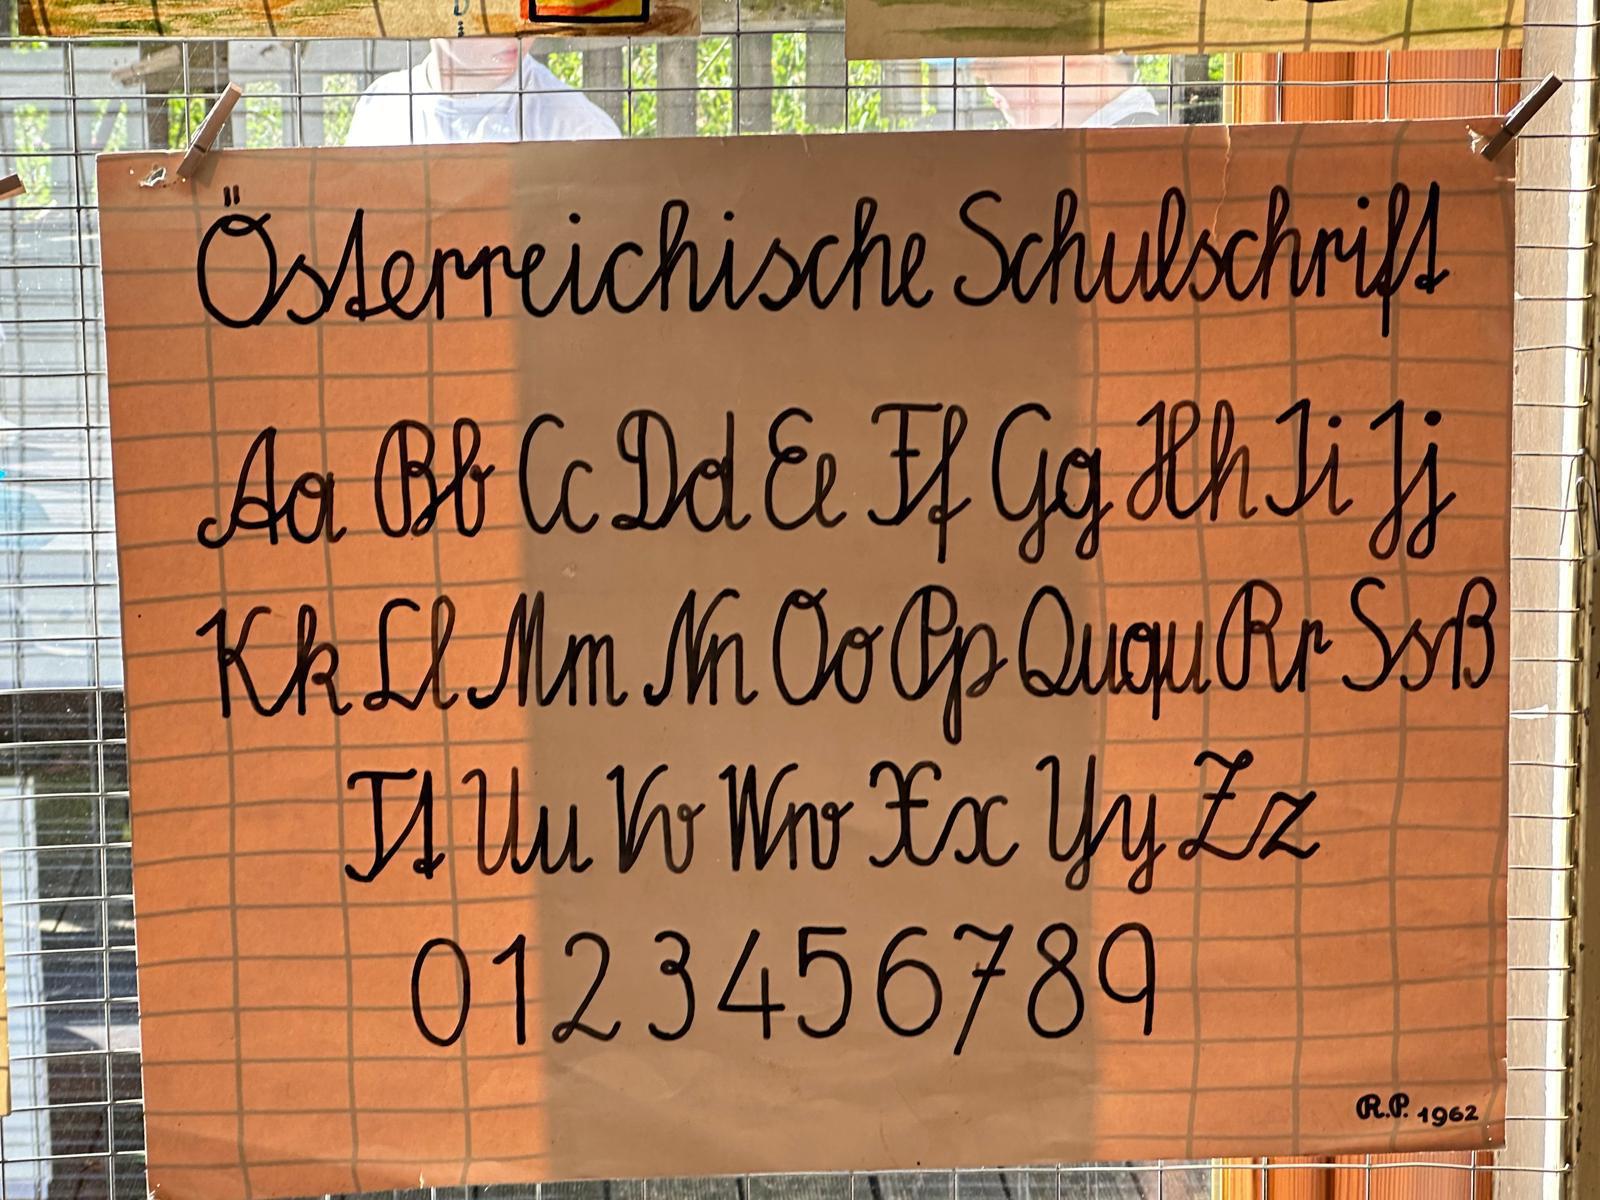 Österreichische Schulschrift
Aa Bb Cc Dd Ee Ff Gg Hh Ii Jj
Kk Ll Mm Nn Oo Pp Ququ Rr Ssß
Tt Uu Vv Ww Xx Yy Zz
0 1 2 3 4 5 6 7 8 9
R.P. 1962